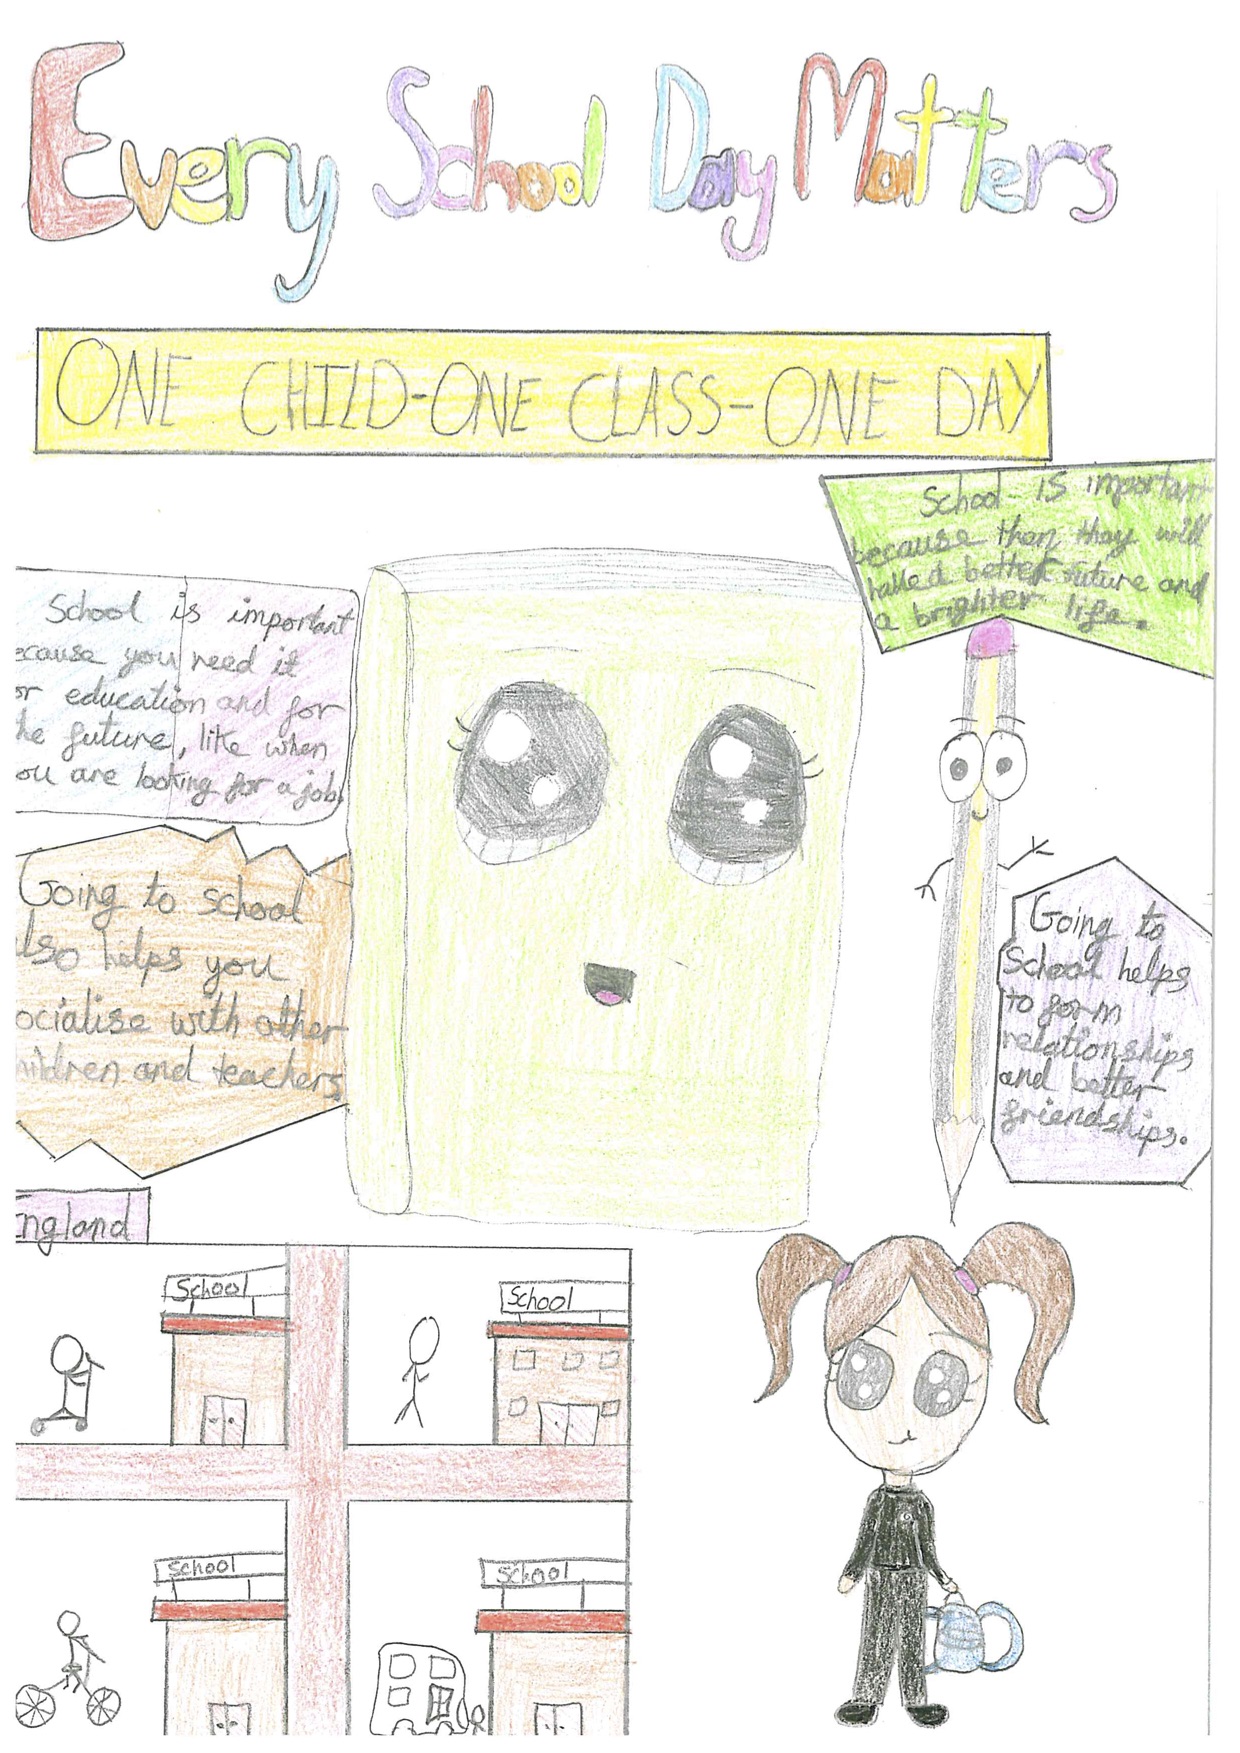 Every School Day Matters
ONE CHILD-ONE CLASS-ONE DAY
School is important
because than they will
better future and
a brighter life.
School is important
ecause you need it
or education and for
he future, like when
ou are looking for a job.
Going to school
lso helps you
ocialise with other
hildren and teachers
Going to
School helps
to form
relationships
and better
friendships.
ngland
School
School
School
School